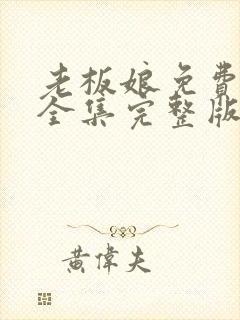 老板娘免費
全集完整版
黄偉夫